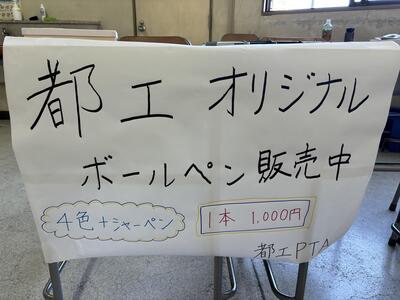 都工オリジナル
ボールペン販売中
4色+シャーペン
1本 1,000円
都工PTA